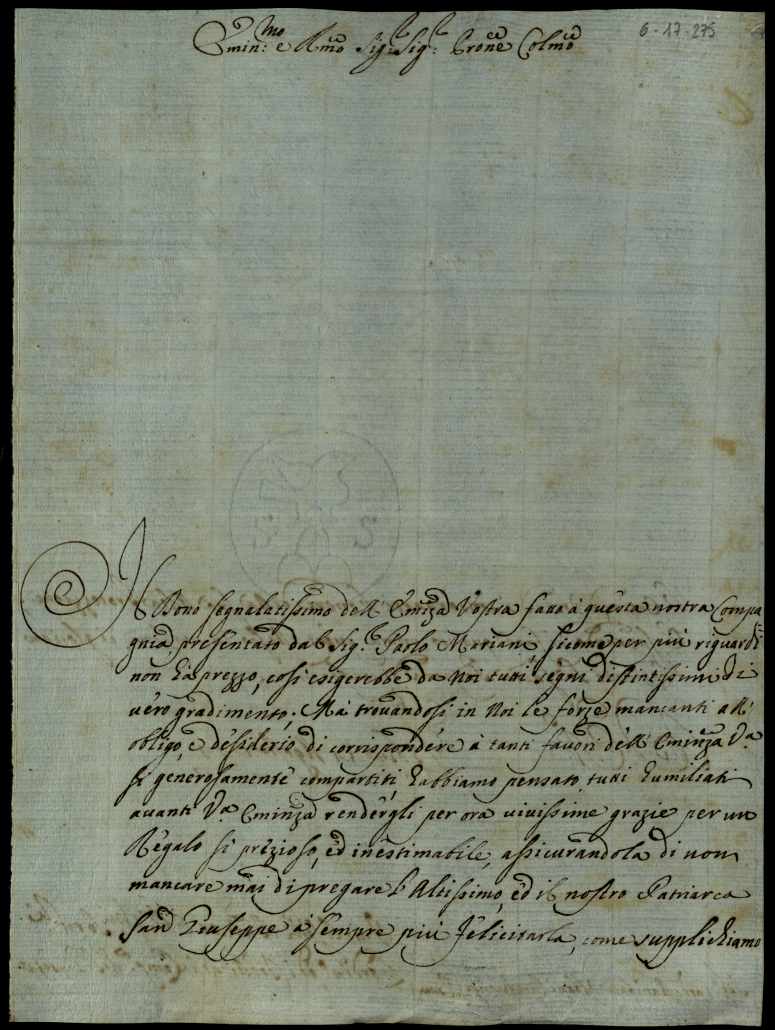 6-17-275
Emin:mo e Rmo Sig:r Sig:r Prone Colmo
Il Dono segnalatissimo dell' Eminza Vostra fatto à questa nostra Compa
gnia presentato dal Sig:r Paolo Mariani sicome per più riguardi
non hà prezzo, così esigerebbe da Noi tutti segni distintissimi di
vero gradimento; Mà trovandosi in Noi le forze mancanti all'
obligo, e desiderio di corrispondere à tanti favori dell' Eminza Va
sì generosamente compartiti, habbiamo pensato tutti humiliati
avanti Va Eminza rendergli per ora vivissime grazie per un
Regalo sì prezioso, ed inestimabile, assicurandola di non
mancare mai di pregare l'Altissimo, ed il nostro Patriarca
San Giuseppe à sempre più felicitarla, come supplichiamo
S S